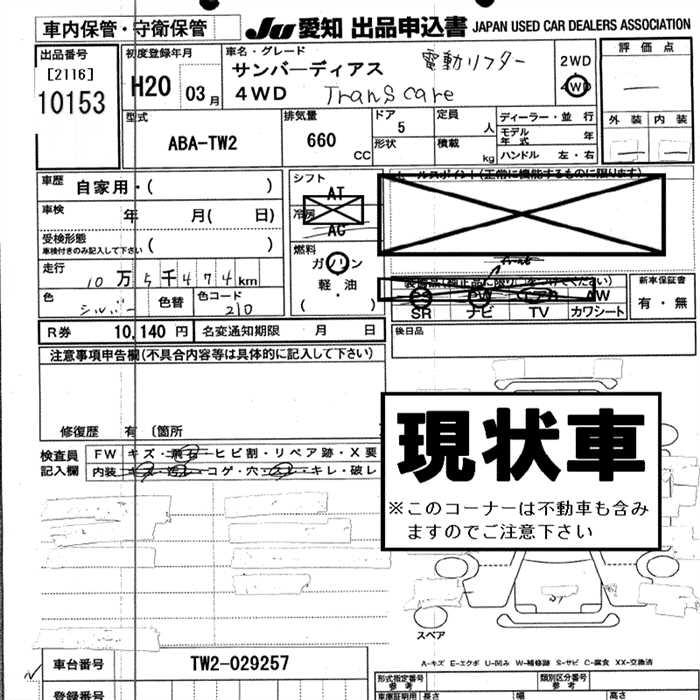 車内保管・守衛保管
JU 愛知 出品申込書 JAPAN USED CAR DEALERS ASSOCIATION
出品番号
[2116]
10153
初度登録年月
H20 年 03 月
車名・グレード
サンバーディアス 電動リフター
4WD Transcare
2WD
4WD
評価点
外装 内装
型式
ABA-TW2
排気量
660
CC
ドア
5
形状
定員
人
積載
kg
ディーラー・並行
モデル年式 年
ハンドル 左・右
車歴 自家用・( )
車検 年 月( 日)
受検形態
車検付きのみ記入して下さい ( )
走行 10万5千474km
色 シルバー 色替 色コード 210
シフト
AT
冷房
AC
燃料
ガソリン
軽油
・
( )
セールスポイント(正常に機能するものに限ります)
(純正品に限り)をつけてください
PW エアB AW
SR ナビ TV カワシート
新車保証書
有・無
R券 10,140 円 名変通知期限 月 日
後日品
注意事項申告欄(不具合内容等は具体的に記入して下さい)
修復歴 有 〔箇所
検査員
記入欄
FW キズ・飛石・ヒビ割・リペア跡・X要
内装 キズ・汚レ・コゲ・穴・キレ・破レ
現状車
※このコーナーは不動車も含み
ますのでご注意下さい
スペア
A-キズ E-エクボ U-凹み W-補修跡 S-サビ C-腐食 XX-交換済
車台番号 TW2-029257
登録番号
形式指定番号
参考
類別区分番号
参考
車庫証明用 長さ 幅 高さ